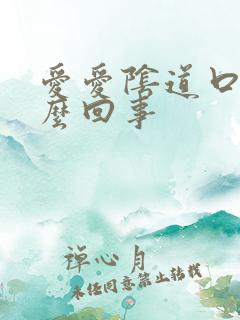 愛愛陰道口
麼回事
禅心月
未经同意禁止转载